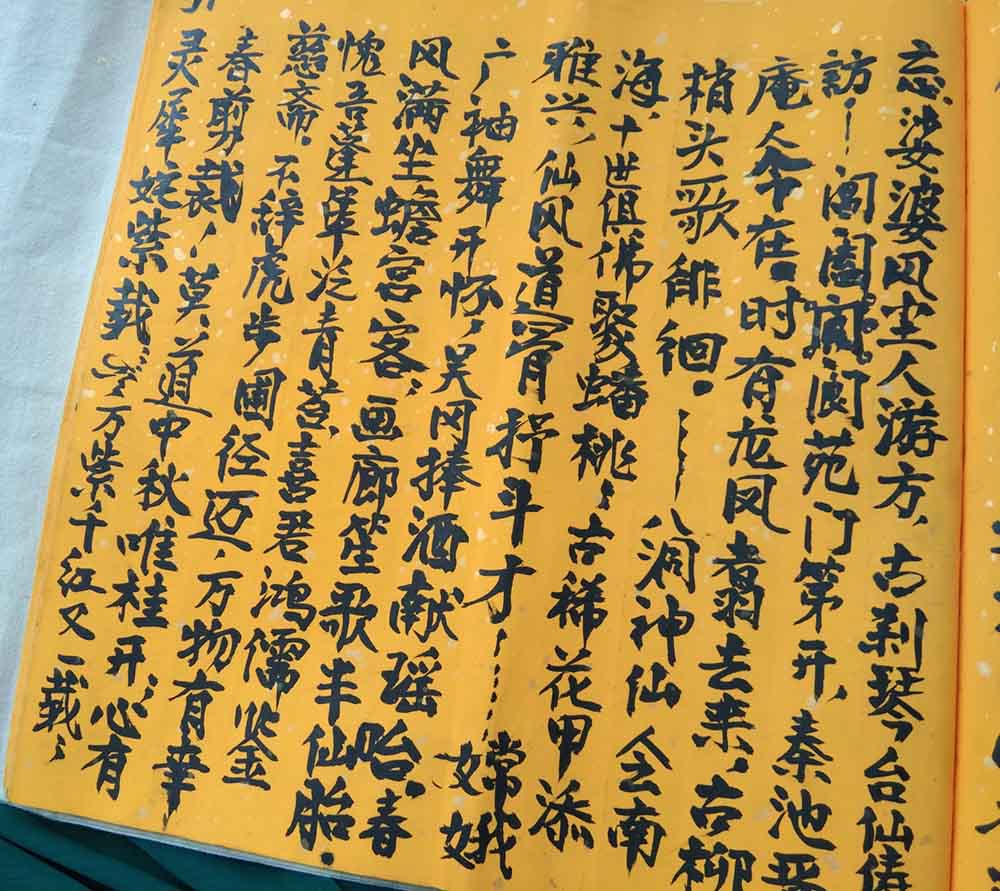 忘,娑婆风尘人游方,古刹琴台仙
訪——阁阖阆苑门第开,秦池晋
庵人今在。时有龙凤翥去来,古柳
梢头歌徘徊。——八洞神仙会南
海,十世俎佛聚蟠桃,古稀花甲添
雅兴,仙风道骨抒斗才——……嫦娥
广袖舞开怀,吴冈捧酒献瑶贻,春
风满坐蟾宫客;画廊笙歌半仙胎。
愧吾蓬荜泛青苔,喜君鸿儒鉴
慈斋,不辞虎步圃径迈,万物有幸
春剪裁,莫道中秋唯桂开,心有
灵犀姹紫载,万紫千红又一载